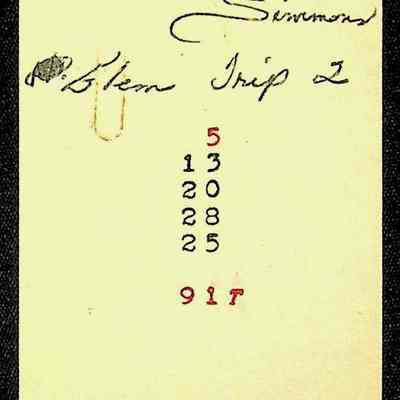 Simmons
Clem Trip 2
5
13
20
28
25
91T